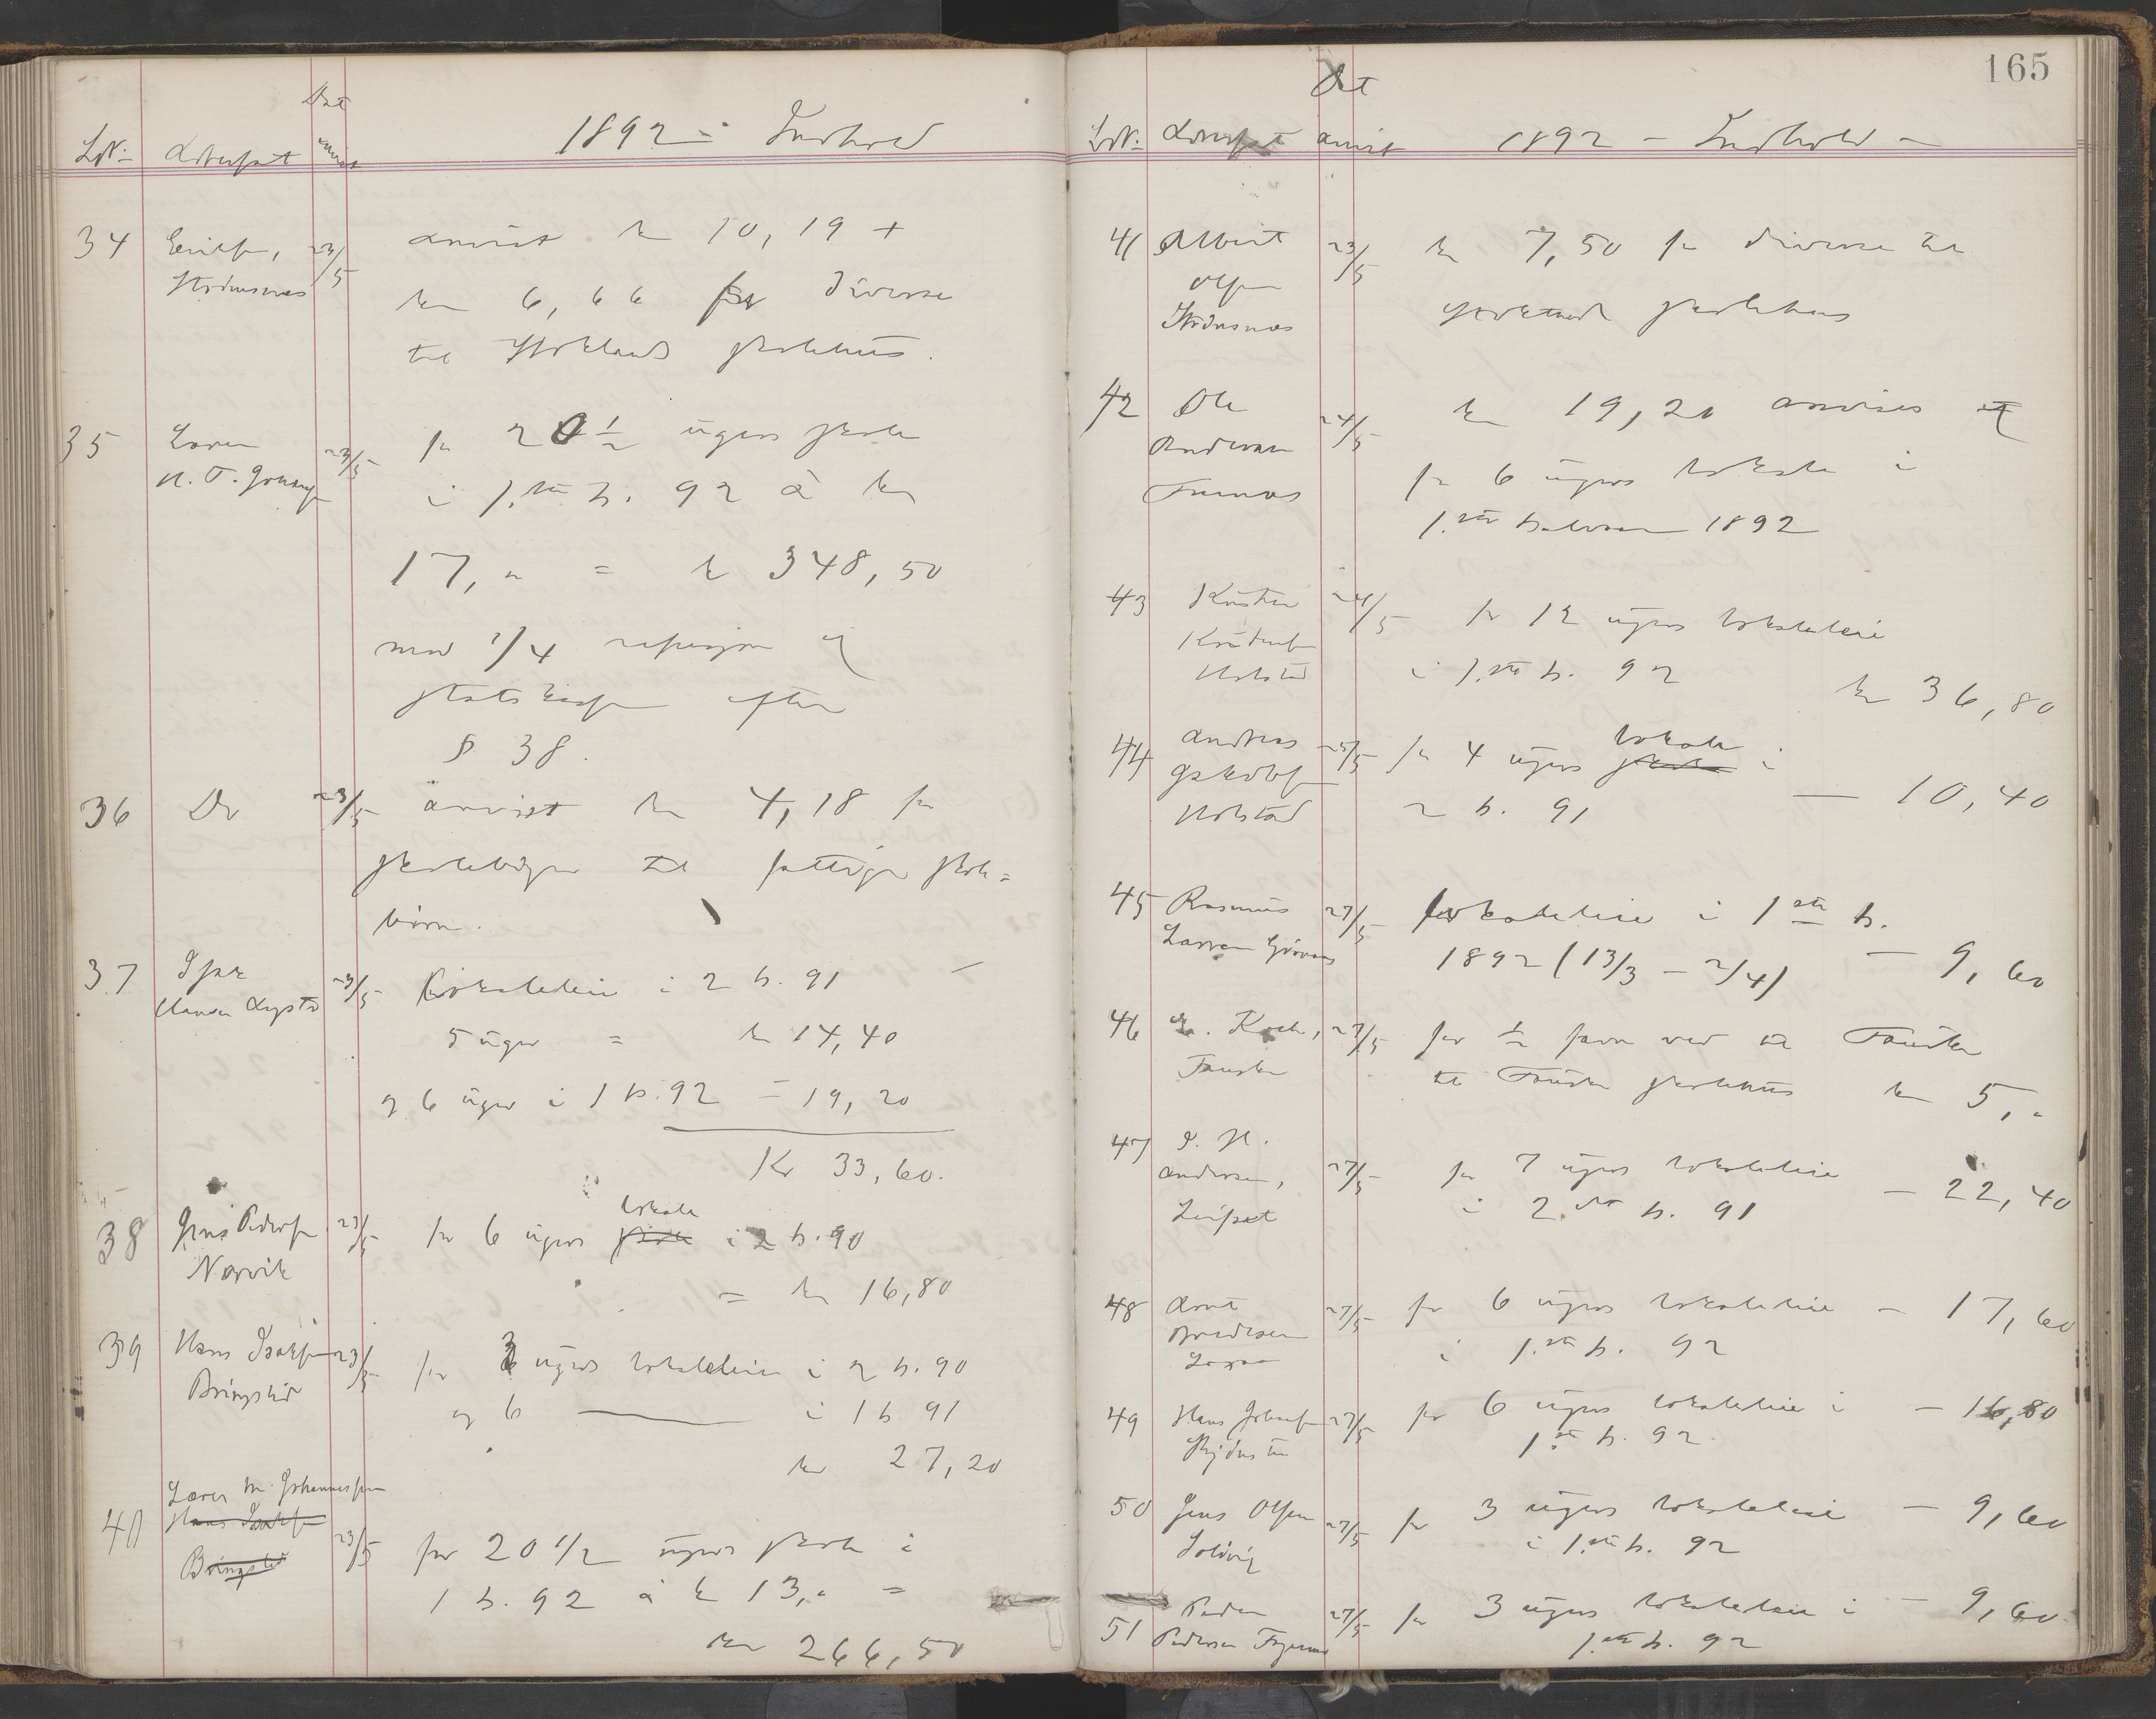 Dat
LN: Adresset anvist 1892 - Indhold
34 Erichsen, 23/5 anvist kr 10,19 +
Strømsnæs kr 6,66 for diverse
til Strklands skolehus.
35 Lærer 23/5 for 20 1/2 ugers skole
i 1.ste h. 92 à kr
17, " = kr 348,50
med 1/4 refusjon af
statskassen efter
§ 38.
36 Do 23/5 anvist kr 4,18 for
skolebøger til fattige skole=
børn.
37 23/5 Lokalleie i 2 h. 91
Hansen
5 uger = kr 14,40
og 6 uger i 1 h. 92 - 19,20
Kr 33,60.
38 Jens Pedersen 23/5 for 6 ugers skole lokale i 2 h. 90
Norvik
= kr 16,80
39 Hans Isaksen 23/5 for 3 ugers lokalleie i 2 h. 90
Bringslid
og 6 — i 1 h 91
kr 27,20
Lærer M. Johannessen
40 Hans Isaksen 23/5 for 20 1/2 ugers skole i
Bringslid
1 h. 92 à kr 13,. =
kr 266,50
165
Dat
LN: Adresset anvist 1892 - Indhold -
41 Albert 23/5 kr 7,50 for diverse til
Olsen skolehus
Strømsnæs
42 Ole 24/5 kr 19,20 anvises
Andersen for 6 ugers lokale i
1.ste halvaar 1892
43 24/5 for 12 ugers lokalleie
i 1.ste h. 92
kr 36,80
44 Andreas 25/5 for 4 ugers skole lokale i
Jakobsen 2 h. 91 — 10,40
45 Rasmus 27/5 lokalleie i 1ste h.
Larsen 1892 (13/3 - 2/4) — 9,60
46 Koch, 27/5 for 1/2 favn ved til Fauske
Fauske til Fauske skolehus kr 5,.
47 27/5 for 7 ugers lokalleie — 22,40
Andersen, i 2det h. 91
Leifset
48 Arnt 27/5 for 6 ugers lokalleie - 17,60
i 1.ste h. 92
49 Hans 27/5 for 6 ugers lokalleie i - 16,80
1.ste h. 92
50 Jens Olsen 27/5 for 3 ugers lokalleie - 9,60
Solvig i 1.ste h. 92
51 Peder 27/5 for 3 ugers lokalleie i - 9,60
Pedersen 1.ste h. 92